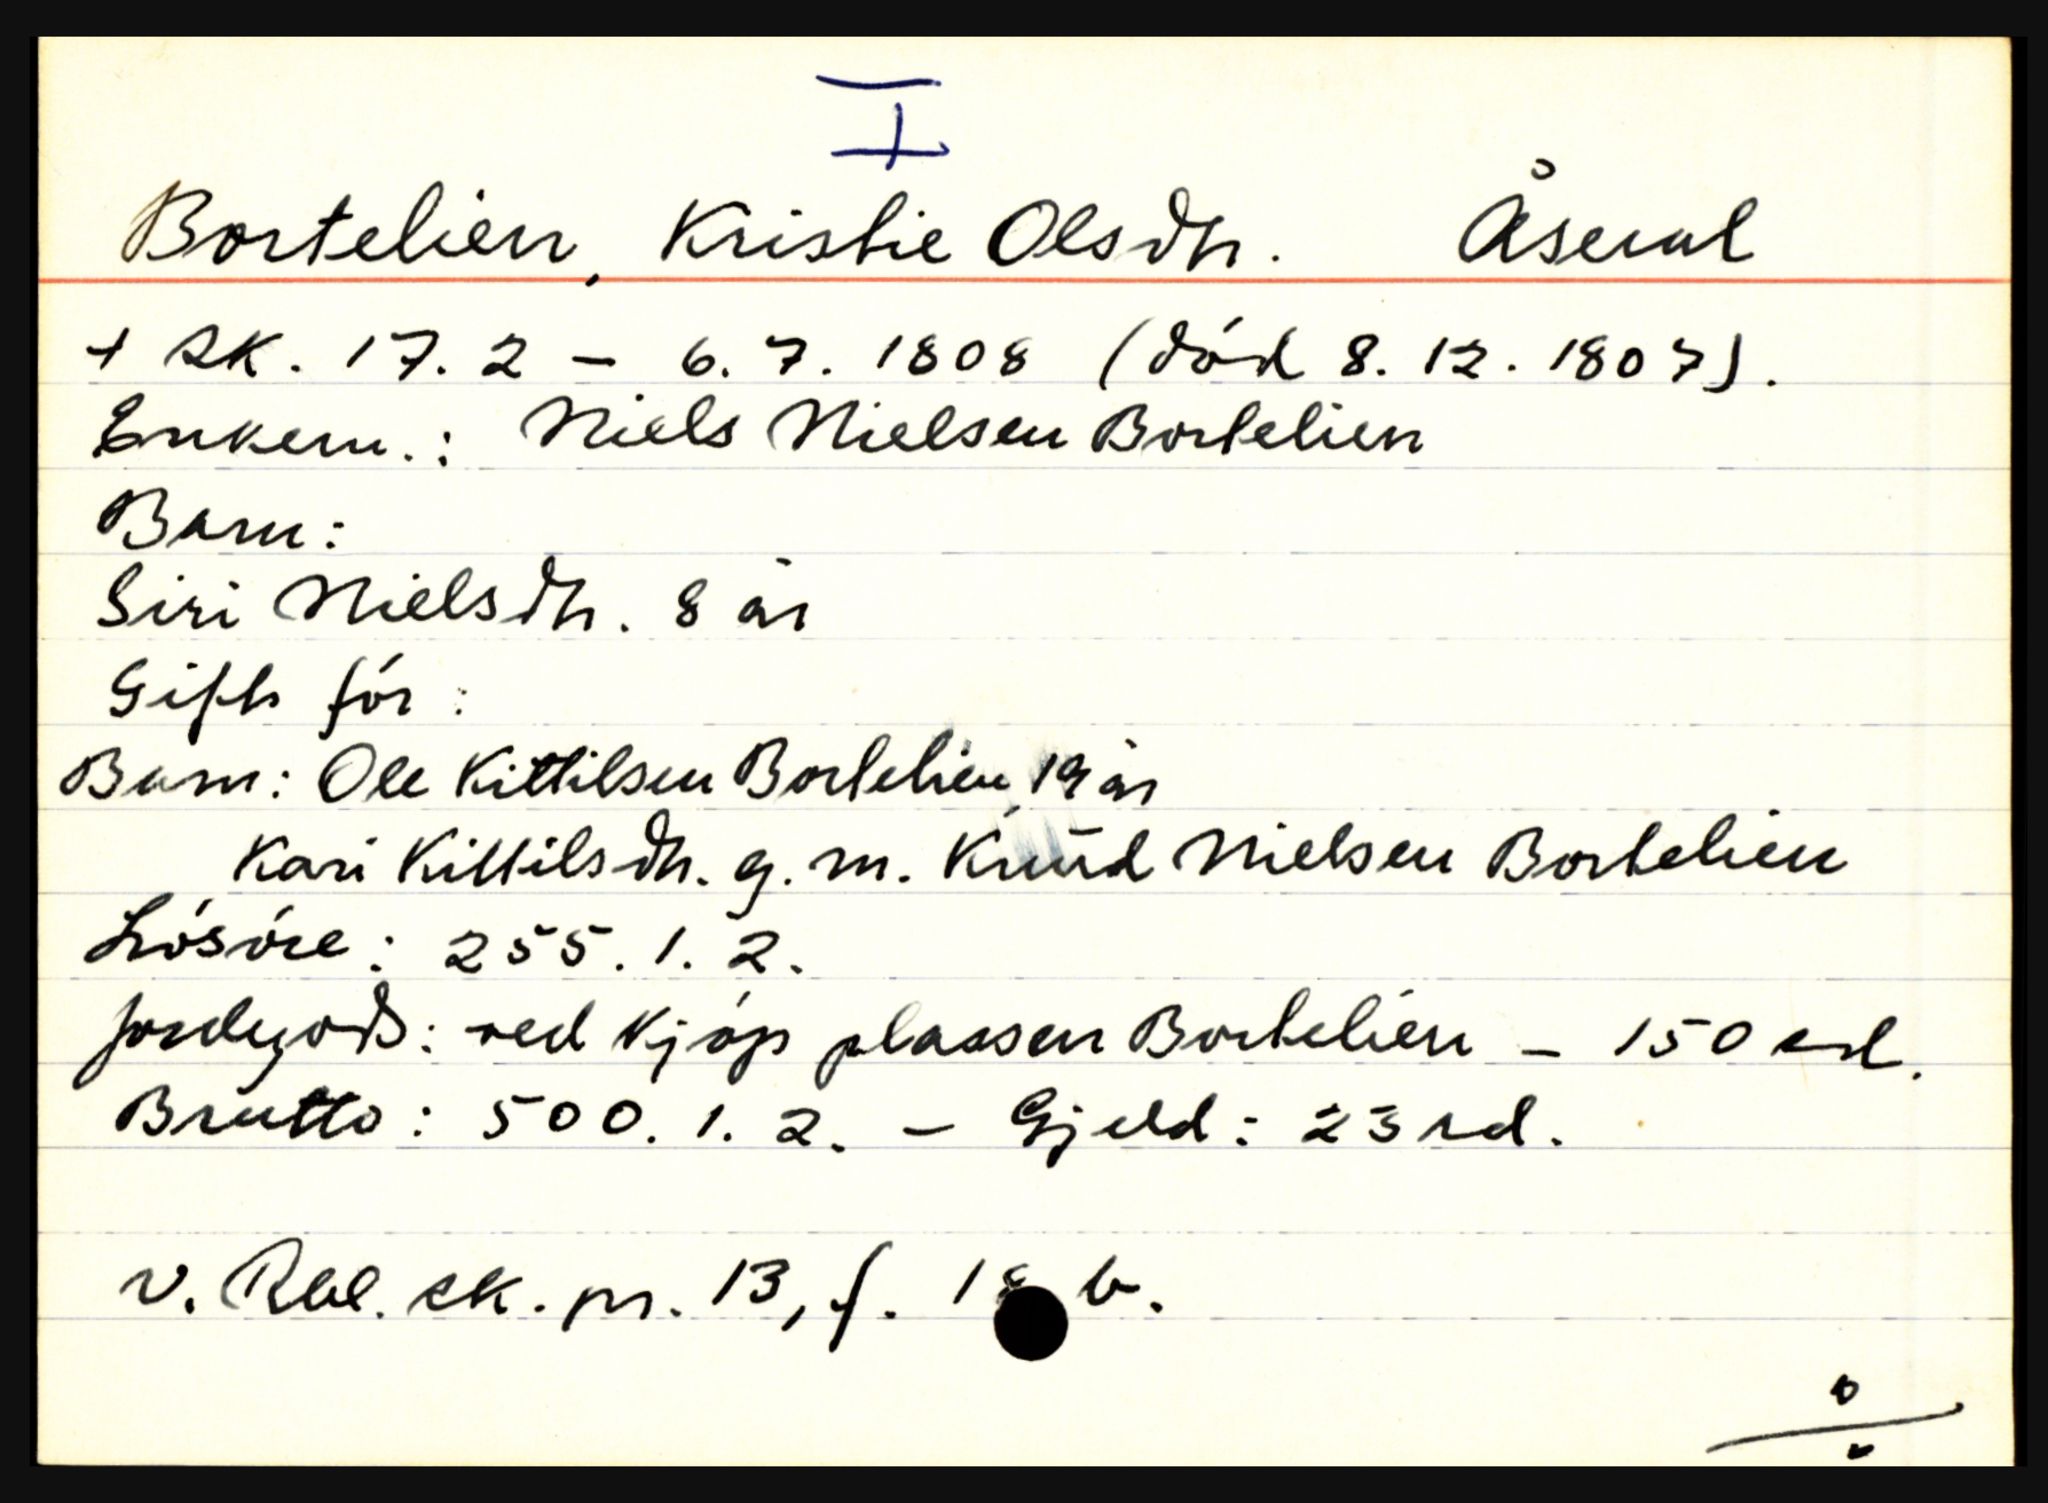 I
Bortelien, Kristie Olsdtr. Åseral
+ sk. 17.2 - 6.7. 1808 (död 8.12.1807).
Enkem.: Niels Nielsen Bortelien
Barn:
Siri Nielsdtr. 8 år
Gift för:
Barn: Ole Kittilsen Bortelien 19 år
Kari Kittilsdtr. g. m. Knud Nielsen Bortelien
Lösöre: 255.1.2.
Jordegods: ved kjöp plassen Bortelien - 150 rd.
Brutto: 500.1.2. - Gjeld: 23 rd.
v. Rbl. sk. pr. 13, f. 18 b.